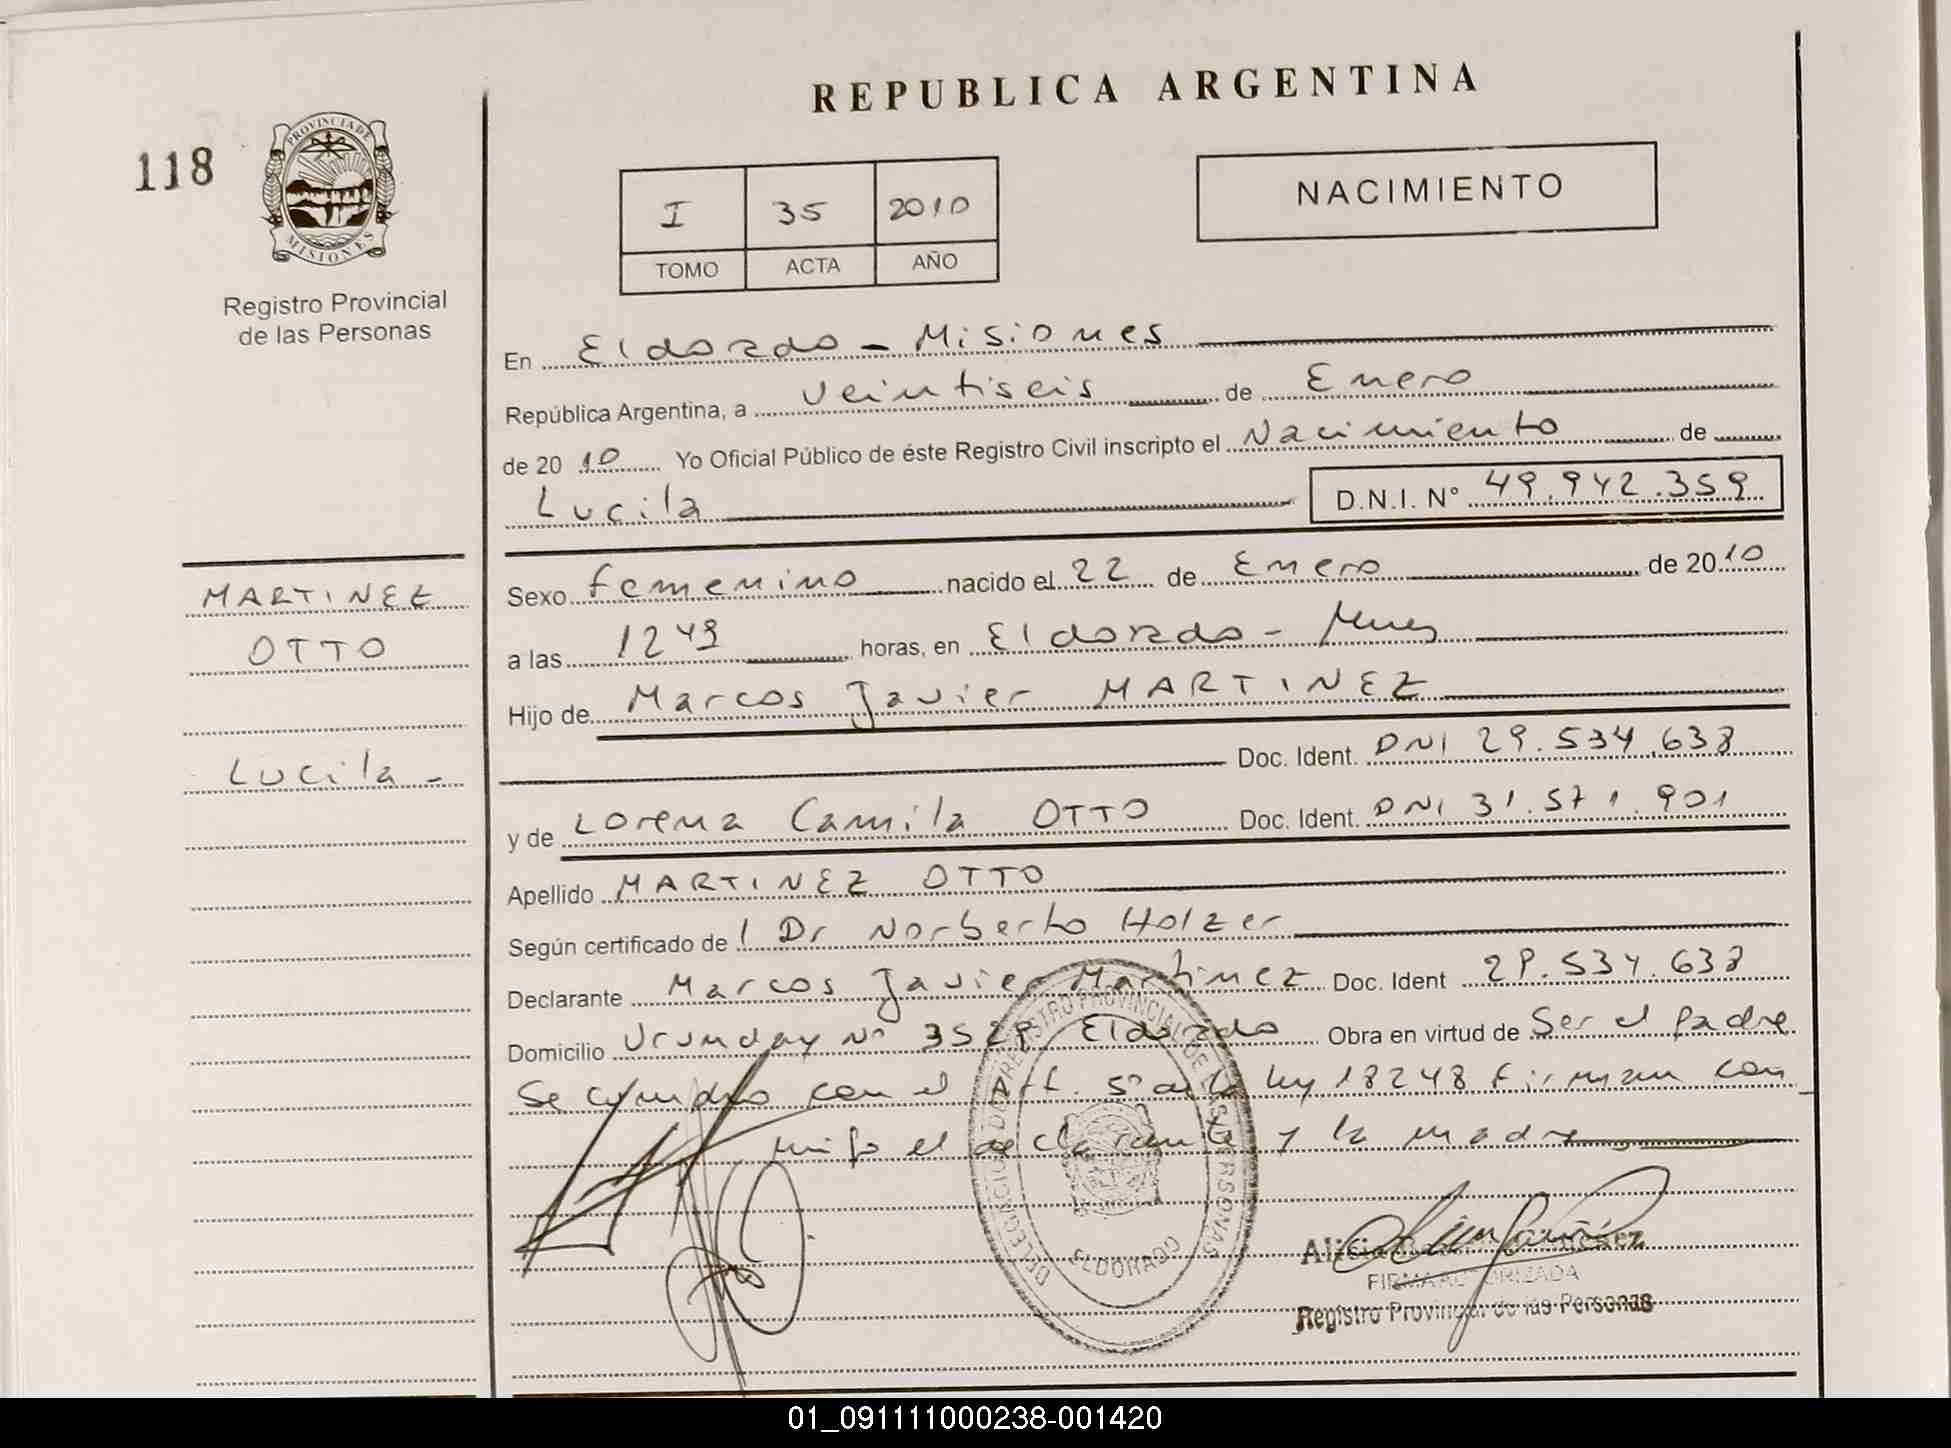 REPUBLICA ARGENTINA
118
PROVINCIA DE
MISIONES
Registro Provincial
de las Personas
I 35 2010
TOMO ACTA AÑO
NACIMIENTO
En Eldorado - Misiones
República Argentina, a veintiseis de Enero
de 20 10 Yo Oficial Público de éste Registro Civil inscripto el Nacimiento de
Lucila D.N.I. N° 49.942.359
MARTINEZ
OTTO
Lucila -
Sexo femenino nacido el 22 de Enero de 2010
a las 1249 horas, en Eldorado - Mnes
Hijo de Marcos Javier MARTINEZ
Doc. Ident. DNI 29.534.638
y de Lorena Camila OTTO Doc. Ident. DNI 31.571.901
Apellido MARTINEZ OTTO
Según certificado de l Dr Norberto Holzer
Declarante Marcos Javier Martinez Doc. Ident 29.534.638
Domicilio Urunday N° 3529 Eldorado Obra en virtud de Ser el padre
Se cumplio con el Art. 5° de la ley 18248 Firman con
migo el declarante y la madre
DELEGACION DEL REGISTRO PROVINCIAL DE LAS PERSONAS
ELDORADO
Alicia
FIRMA AUTORIZADA
Registro Provincial de las Personas
01_091111000238-001420